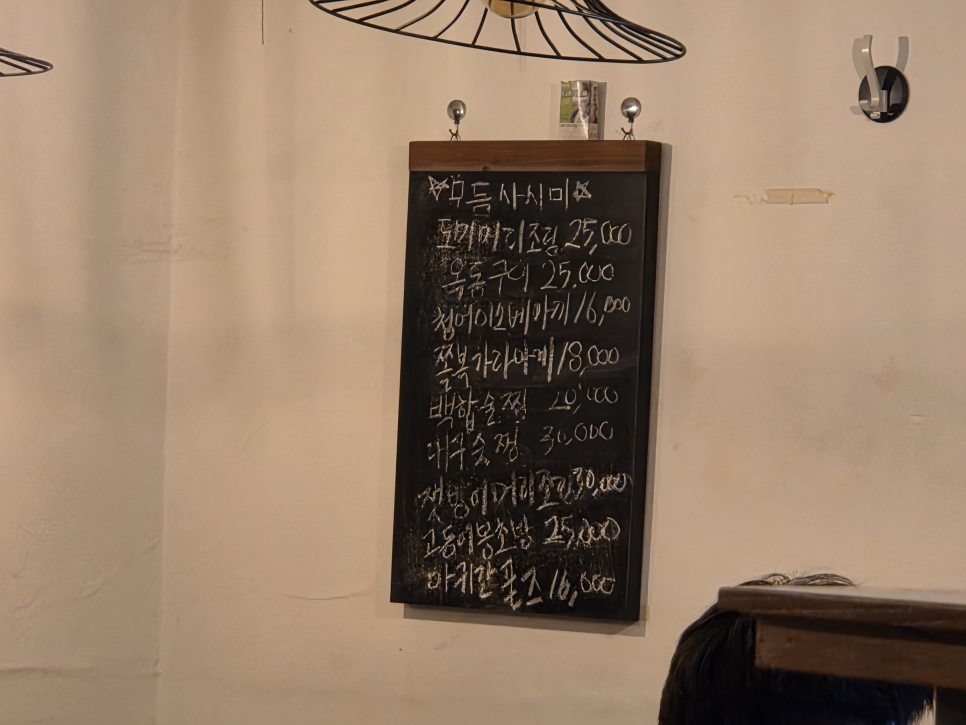 ☆모듬사시미☆
도미머리조림 25,000
옥돔구이 25,000
청어이소베마끼 16,000
쫄복가라아게 18,000
백합술찜 20,000
대구술찜 30,000
잿방어머리조림 30,000
고등어봉초밥 25,000
아귀간폰즈 16,000